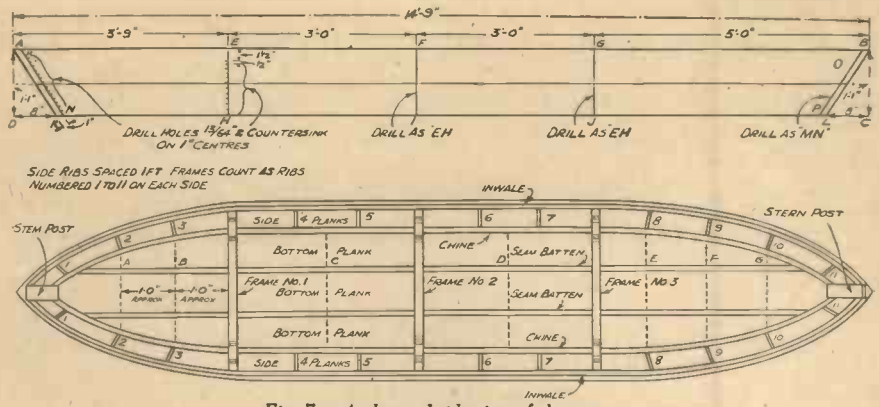 14'-9"
3'-9" 3'-0" 3'-0" 5'-0"
A E F G B
1½"
½"
O
1'-1" 1'-1"
D 8" N 1" H J P L 8" C
DRILL HOLES 13/64" & COUNTERSINK
ON 1" CENTRES
DRILL AS "EH"
DRILL AS "EH"
DRILL AS "MN"
SIDE RIBS SPACED 1FT FRAMES COUNT AS RIBS
NUMBERED 1 TO 11 ON EACH SIDE
INWALE
STEM POST
STERN POST
1 2 3 SIDE 4 PLANKS 5 6 7 8 9 10 11
BOTTOM PLANK CHINE
A B C D SEAM BATTEN E F G
1'-0" 1'-0"
APPROX APPROX
FRAME NO.1 BOTTOM PLANK FRAME NO 2 SEAM BATTEN FRAME NO.3
BOTTOM PLANK CHINE
1 2 3 SIDE 4 PLANKS 5 6 7 8 9 10 11
INWALE